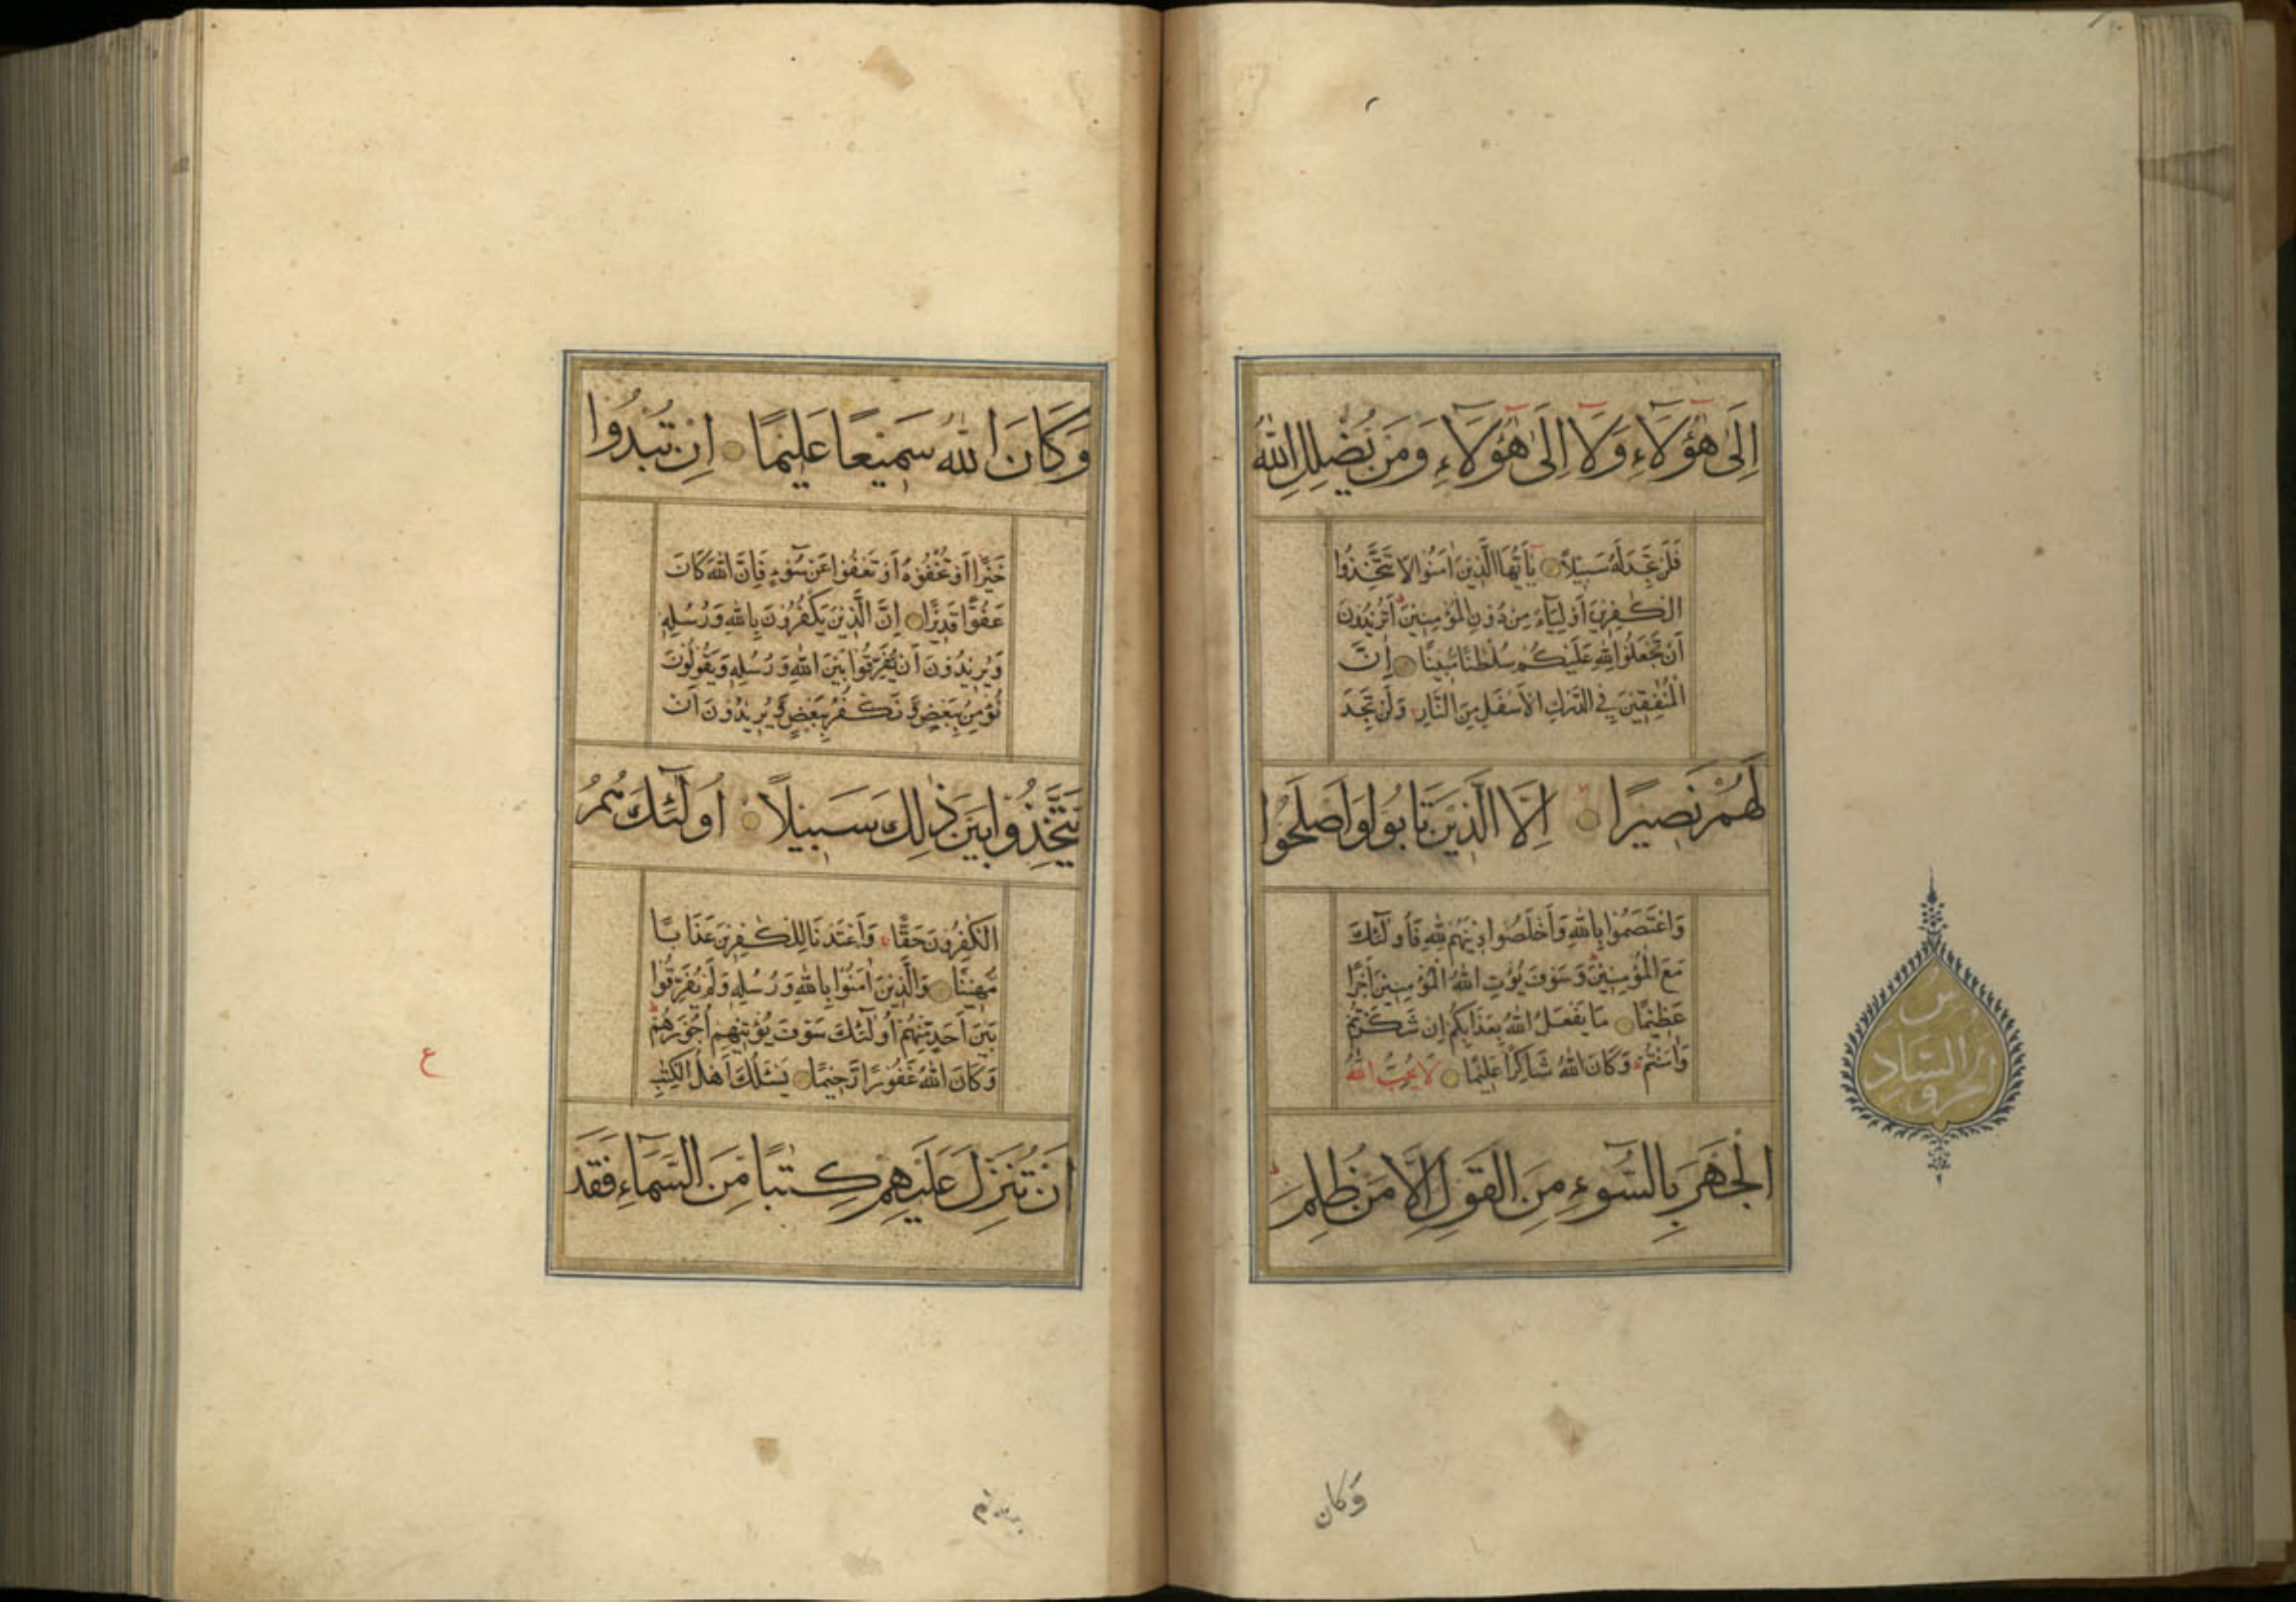 اِلَىٰ هٰٓؤُلَآءِ وَلَآ اِلَىٰ هٰٓؤُلَآءِ وَمَن يُضْلِلِ اللّٰهُ
فَلَن تَجِدَ لَهُ سَبِيلًا يٰٓاَيُّهَا الَّذِينَ اٰمَنُوا لَا تَتَّخِذُوا
الْكٰفِرِينَ اَوْلِيَآءَ مِنْ دُونِ الْمُؤْمِنِينَ اَتُرِيدُونَ
اَنْ تَجْعَلُوا لِلّٰهِ عَلَيْكُمْ سُلْطٰنًا مُّبِينًا اِنَّ
الْمُنٰفِقِينَ فِي الدَّرْكِ الْاَسْفَلِ مِنَ النَّارِ وَلَن تَجِدَ
لَهُمْ نَصِيرًا اِلَّا الَّذِينَ تَابُوا وَاَصْلَحُوا
وَاعْتَصَمُوا بِاللّٰهِ وَاَخْلَصُوا دِينَهُمْ لِلّٰهِ فَاُولٰٓئِكَ
مَعَ الْمُؤْمِنِينَ وَسَوْفَ يُؤْتِ اللّٰهُ الْمُؤْمِنِينَ اَجْرًا
عَظِيمًا مَا يَفْعَلُ اللّٰهُ بِعَذَابِكُمْ اِن شَكَرْتُمْ
وَاٰمَنْتُمْ وَكَانَ اللّٰهُ شَاكِرًا عَلِيمًا لَا يُحِبُّ اللّٰهُ
الْجَهْرَ بِالسُّوٓءِ مِنَ الْقَوْلِ اِلَّا مَنْ ظُلِمَ
الجزو السادس
وَكان
وَكَانَ اللّٰهُ سَمِيعًا عَلِيمًا اِنْ تُبْدُوا
خَيْرًا اَوْ تُخْفُوهُ اَوْ تَعْفُوا عَنْ سُوٓءٍ فَاِنَّ اللّٰهَ كَانَ
عَفُوًّا قَدِيرًا اِنَّ الَّذِينَ يَكْفُرُونَ بِاللّٰهِ وَرُسُلِهِ
وَيُرِيدُونَ اَنْ يُفَرِّقُوا بَيْنَ اللّٰهِ وَرُسُلِهِ وَيَقُولُونَ
نُؤْمِنُ بِبَعْضٍ وَّنَكْفُرُ بِبَعْضٍ وَّيُرِيدُونَ اَنْ
يَتَّخِذُوا بَيْنَ ذٰلِكَ سَبِيلًا اُولٰٓئِكَ هُمُ
الْكٰفِرُونَ حَقًّا وَاَعْتَدْنَا لِلْكٰفِرِينَ عَذَابًا
مُّهِينًا وَالَّذِينَ اٰمَنُوا بِاللّٰهِ وَرُسُلِهِ وَلَمْ يُفَرِّقُوا
بَيْنَ اَحَدٍ مِّنْهُمْ اُولٰٓئِكَ سَوْفَ يُؤْتِيهِمْ اُجُورَهُمْ
وَكَانَ اللّٰهُ غَفُورًا رَّحِيمًا يَسْئَلُكَ اَهْلُ الْكِتٰبِ
اَنْ تُنَزِّلَ عَلَيْهِمْ كِتٰبًا مِّنَ السَّمَآءِ فَقَدْ
ع